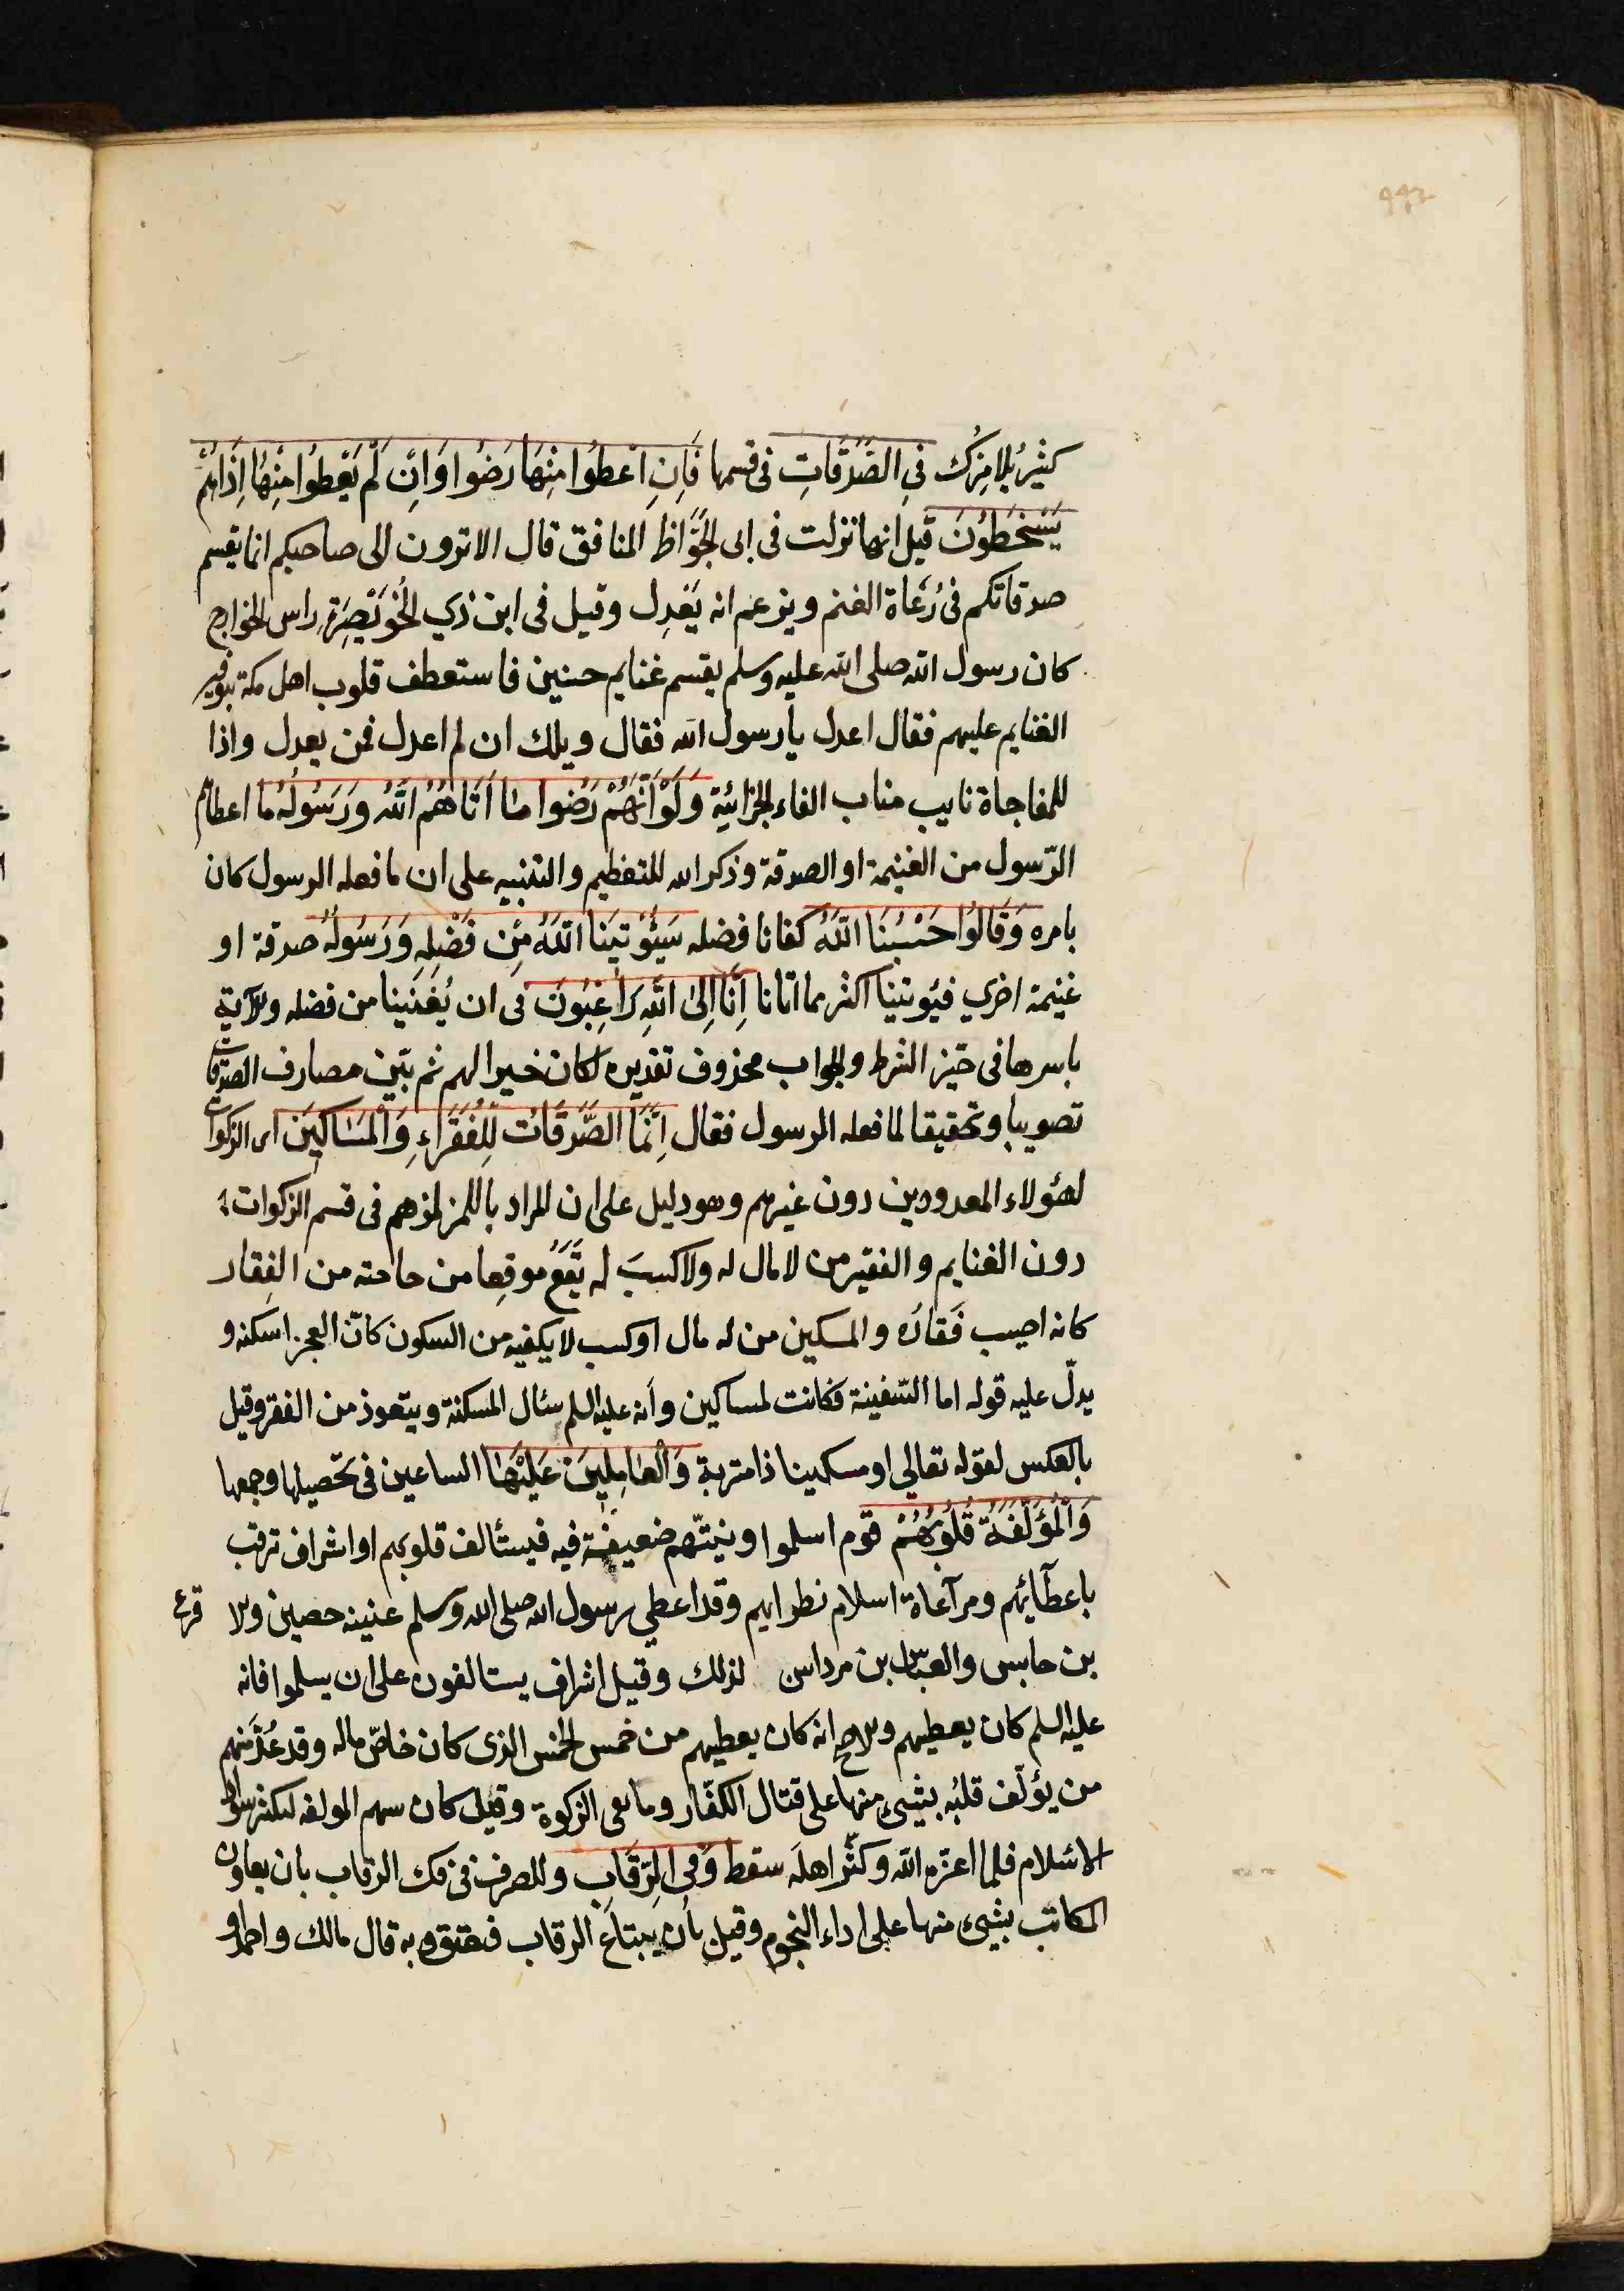 كثير يلامزك في الصَّدَقَاتِ فى قسمها فَإِنِ اُعْطُوا مِنْهَا رَضُوا وَاِنْ لَمْ يُعْطَوْا مِنْهَا اِذَا هُمْ
يَسْخَطُونَ قيل انها نزلت فى ابى الجَوَّاظ المنافق قال الا ترون الى صاحبكم انما يقسم
صدقاتكم فى رُعَاة الغنم ويزعم انه يَعْدِل وقيل فى ابن ذي الخُوَيْصِرَة راس الخوارج
كان رسول الله صلى الله عليه وسلم يقسم غنايم حنين فاستعطف قلوب اهل مكة بتوفير
الغنايم عليهم فقال اعدل يا رسول الله فقال ويلك ان لم اعدل فمن يعدل واذا
للمفاجاة نايب مناب الفاء الجزائية وَلَوْ اَنَّهُمْ رَضُوا مَا اَتَاهُمُ اللَّهُ وَرَسُولُهُ ما اعطاهم
الرّسول من الغنيمة او الصدقة وذكر الله للتعظيم والتنبيه على ان ما فعله الرسول كان
بامره وَقَالُوا حَسْبُنَا اللَّهُ كفانا فضله سَيُؤْتِينَا اللَّهُ مِنْ فَضْلِهِ وَرَسُولُهُ صدقة او
غنيمة اخري فيؤتينا اكثر مما اتانا اِنَّا اِلَى اللَّهِ رَاغِبُونَ فى ان يُغْنِينا من فضله والآية
باسرها فى حيّز الشرط والجواب محذوف تقديره لكان خيرا لهم ثم بيّن مصارف الصدقات
تصويبا وتحقيقا لما فعله الرسول فقال اِنَّمَا الصَّدَقَاتُ لِلْفُقَرَاءِ وَالْمَسَاكِينِ اى الزكوات
لهؤلاء المعدودين دون غيرهم وهو دليل على ان المراد باللمز لمزهم فى قسم الزكوات
دون الغنايم والفقير من لا مال له ولا كسبَ له يَقَعُ موقِعا من حاجته من الفِقار
كانه اصيب فَقَارُه والمسكين من له مال او كسب لا يكفيه من السكون كانّ العجز اسكنه و
يدلّ عليه قوله اما السّفينة فكانت لمساكين وأنه عليه السلم سئال المسكنة ويتعوذ من الفقر وقيل
بالعكس لقوله تعالي او مسكينا ذا متربة وَالْعَامِلِينَ عَلَيْهَا الساعين فى تحصيلها وجمعها
وَالْمُؤَلَّفَةِ قُلُوبُهُمْ قوم اسلموا ونيتّهم ضعيفة فيه فيستألف قلوبهم او اشراف ترقب
باعطآئهم ومرآعاة اسلام نظرايهم وقد اعطي رسول الله صلى الله وسلم عنينه حصين والا قرع
بن حابس والعباس بن مرداس لذلك وقيل اشراف يستالفون على ان يسلموا فانه
عليه السلم كان يعطيهم والاصح انه كان يعطيهم من خمس الخمس الذى كان خاصّ ماله وقد عُدَّ منهم
من يؤلّف قلبُه بشئ منها على قتال الكفّار ومانعى الزكوة وقيل كان سهم المولفه لتكثير سواد
الاسلام فلما اعزّه الله وكثّر اهلَه سقط وَفِى الرِّقَابِ وللصرف فى فك الرقاب بان يعاون
المكاتب بشئ منها على اداء النجوم وقيل بأن يبتاعَ الرقاب فتعتق وبه قال مالك واحمد او